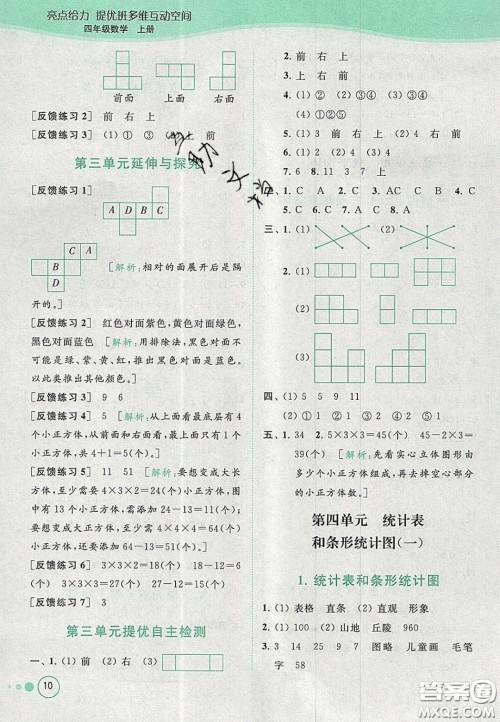 亮点给力 提优班多维互动空间
四年级数学 上册
前面 上面 右面
[反馈练习2] 前 右 上
[反馈练习3] (1) ① ③ (2) 上 前
第三单元延伸与探究
[反馈练习1]
A D B C
C A
B
D [解析:相对的面展开后是隔
开的。]
[反馈练习2] 红色对面紫色,黄色对面绿色,
黑色对面蓝色 [解析:用排除法,黑色对面不
可能是绿、紫、黄、红,推出黑色对面是蓝色。
以此类推出其他颜色对面。]
[反馈练习3] 9 6
[反馈练习4] 5 [解析:从上面看最底层有4
个小正方体,从前面和右面看,最上面只有1个
小正方体,共4+1=5(个)。]
[反馈练习5] 11 51 [解析:要想变成大长
方体,至少需要4×3×2=24(个)小正方体,图
中有13个小正方体,还需要24-13=11(个)。
要想变成大正方体,至少需要4×4×4=64(个)
小正方体,还需要64-13=51(个)。]
[反馈练习6] 4×3×1=12(个) 18-12=6
(个) 3×3×3=27(个) 27-12=15(个)
[反馈练习7] 3
第三单元提优自主检测
一、1. (1) 前 右 (2) ① ③
10
2. 前 右 上
3. (1) ① ② (2) ③④ (3) ③④
(4) ①②⑤
4. 前 右 上
5. (1) 前 右 上 (2) 4 右 前
7. 6 8. 11 3 7 上
1. A C 2. C 3. AC 4. C B
5. C 6. C 7. A 8. C 9. B
三、1. (1) (2)
2. (1)
(2)
(3)
四、(1) ⑤ (2) ① ③ ④
(3) ② (4) ① ② ③
五、1. 34 2. 5×3×3=45(个) 45-2×3=
39(个) [解析:先看实心立体图形由
多少个小正方体组成,再去掉空心部分
的小正方体个数。]
第四单元 统计表
和条形统计图(一)
1. 统计表和条形统计图
1. (1) 表格 直条 (2) 直观 形象
2. (1) 100 (2) 山地 丘陵 960
3. 3 14 25 9 7 图略 儿童画 毛笔
字 58
答案圈
MXQE.COM